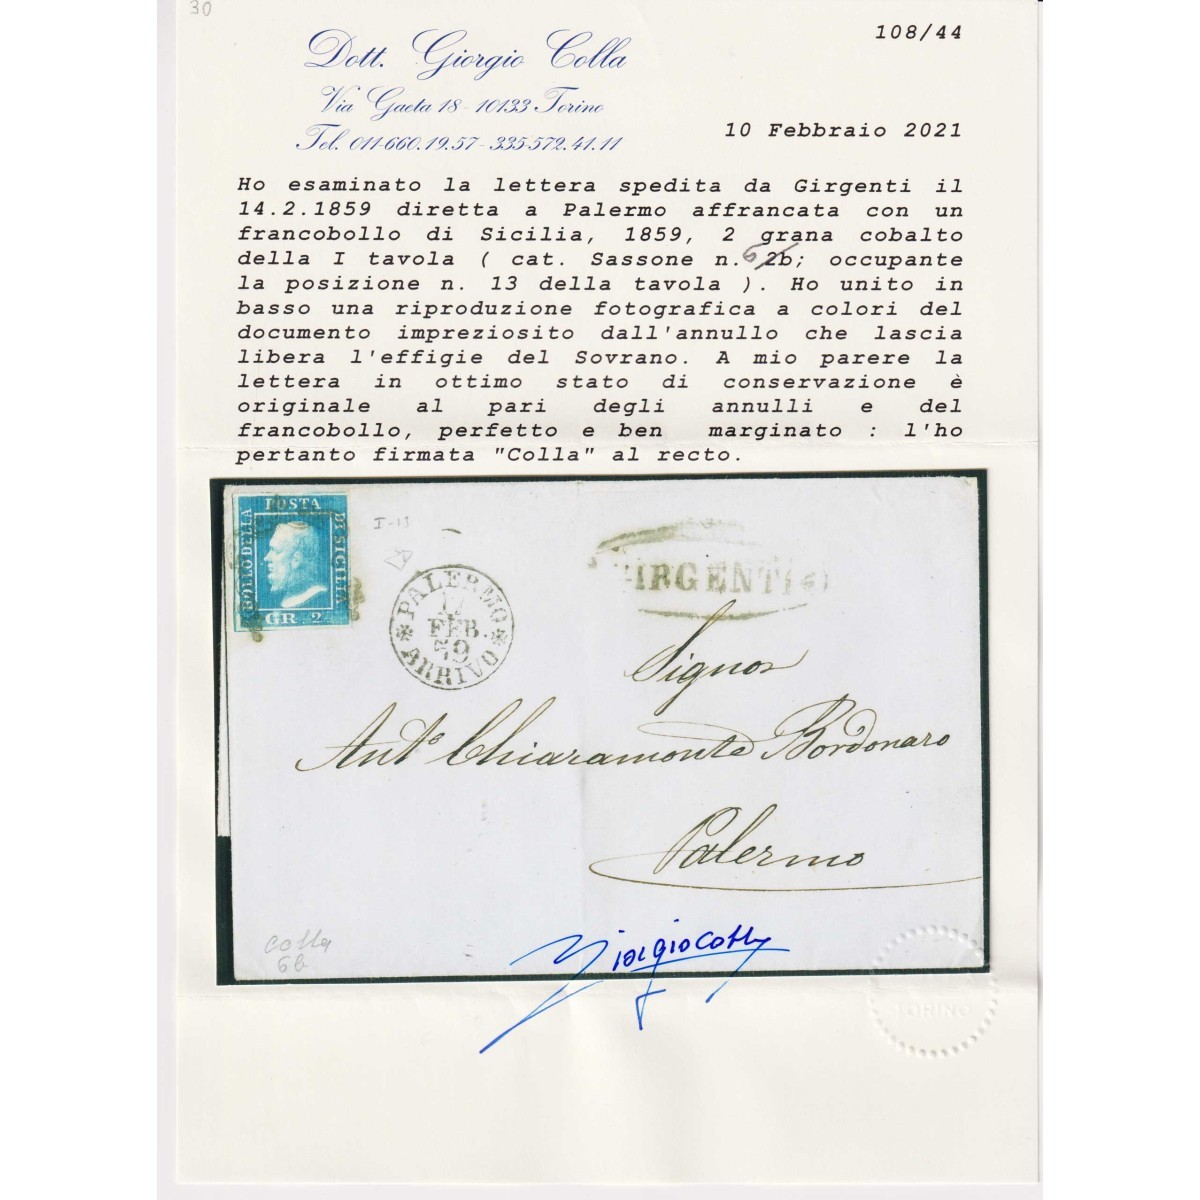 30
108/44
Dott. Giorgio Colla
Via Gaeta 18 - 10133 Torino
Tel. 011-660.19.57 - 335-572.41.11
10 Febbraio 2021
Ho esaminato la lettera spedita da Girgenti il
14.2.1859 diretta a Palermo affrancata con un
francobollo di Sicilia, 1859, 2 grana cobalto
della I tavola ( cat. Sassone n. 6 2b; occupante
la posizione n. 13 della tavola ). Ho unito in
basso una riproduzione fotografica a colori del
documento impreziosito dall'annullo che lascia
libera l'effigie del Sovrano. A mio parere la
lettera in ottimo stato di conservazione è
originale al pari degli annulli e del
francobollo, perfetto e ben marginato : l'ho
pertanto firmata "Colla" al recto.
BOLLO DELLA
POSTA
DI SICILIA
GR. 2
I-13
PALERMO
17
FEB.
59
ARRIVO
GIRGENTI
Signor
Ant.e Chiaramonte Bordonaro
Palermo
Colla
6b
Giorgio Colla
TORINO